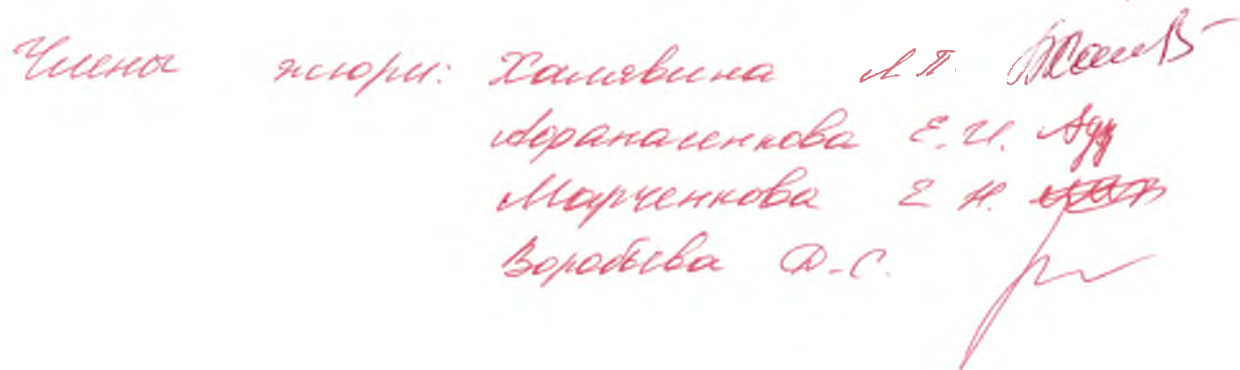 Члены жюри: Халявина Л.П.
Афранасенкова Е.И.
Марченкова Е.Н.
Воробьева Д.С.